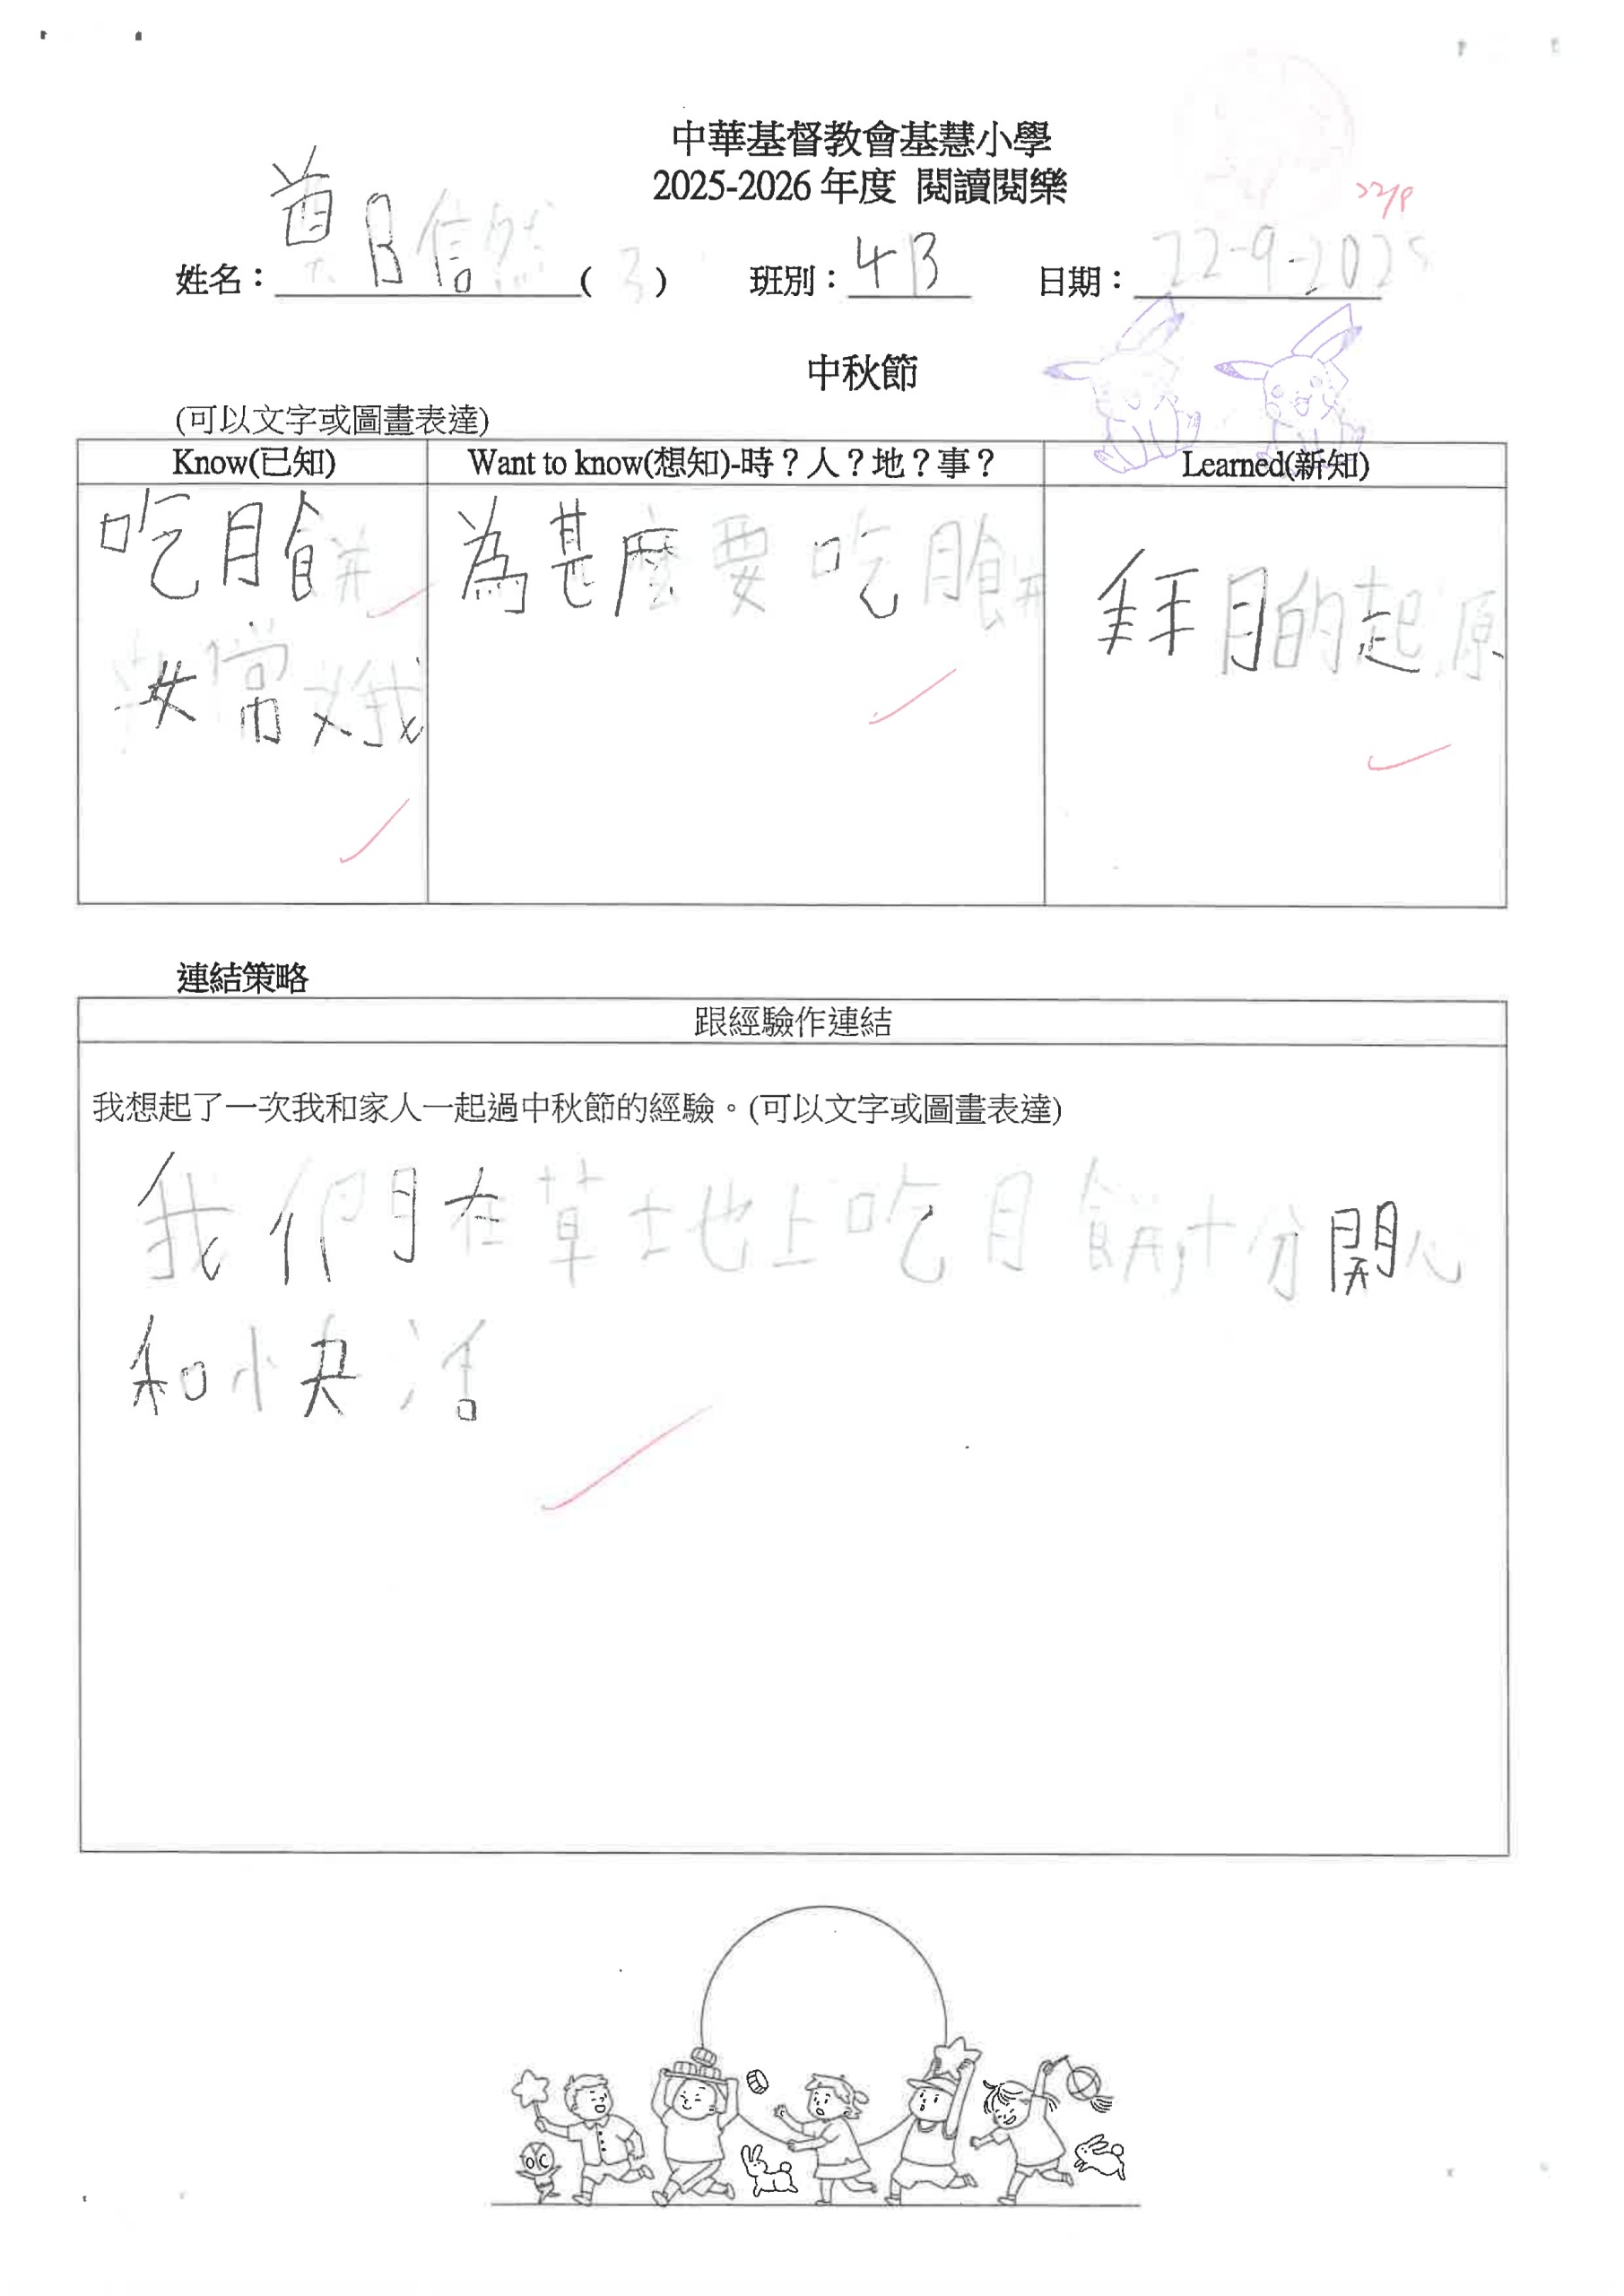 中華基督教會基慧小學
2025-2026 年度 閱讀閱樂
22/9
姓名：信然 ( 3 ) 班別：4B 日期：22-9-2025
中秋節
(可以文字或圖畫表達)
Know(已知) Want to know(想知)-時？人？地？事？ Learned(新知)
吃月餅 為甚麼要吃月餅 拜月的起原
嫦娥
連結策略
跟經驗作連結
我想起了一次我和家人一起過中秋節的經驗。(可以文字或圖畫表達)
我們在草地上吃月餅十分開心
和快活